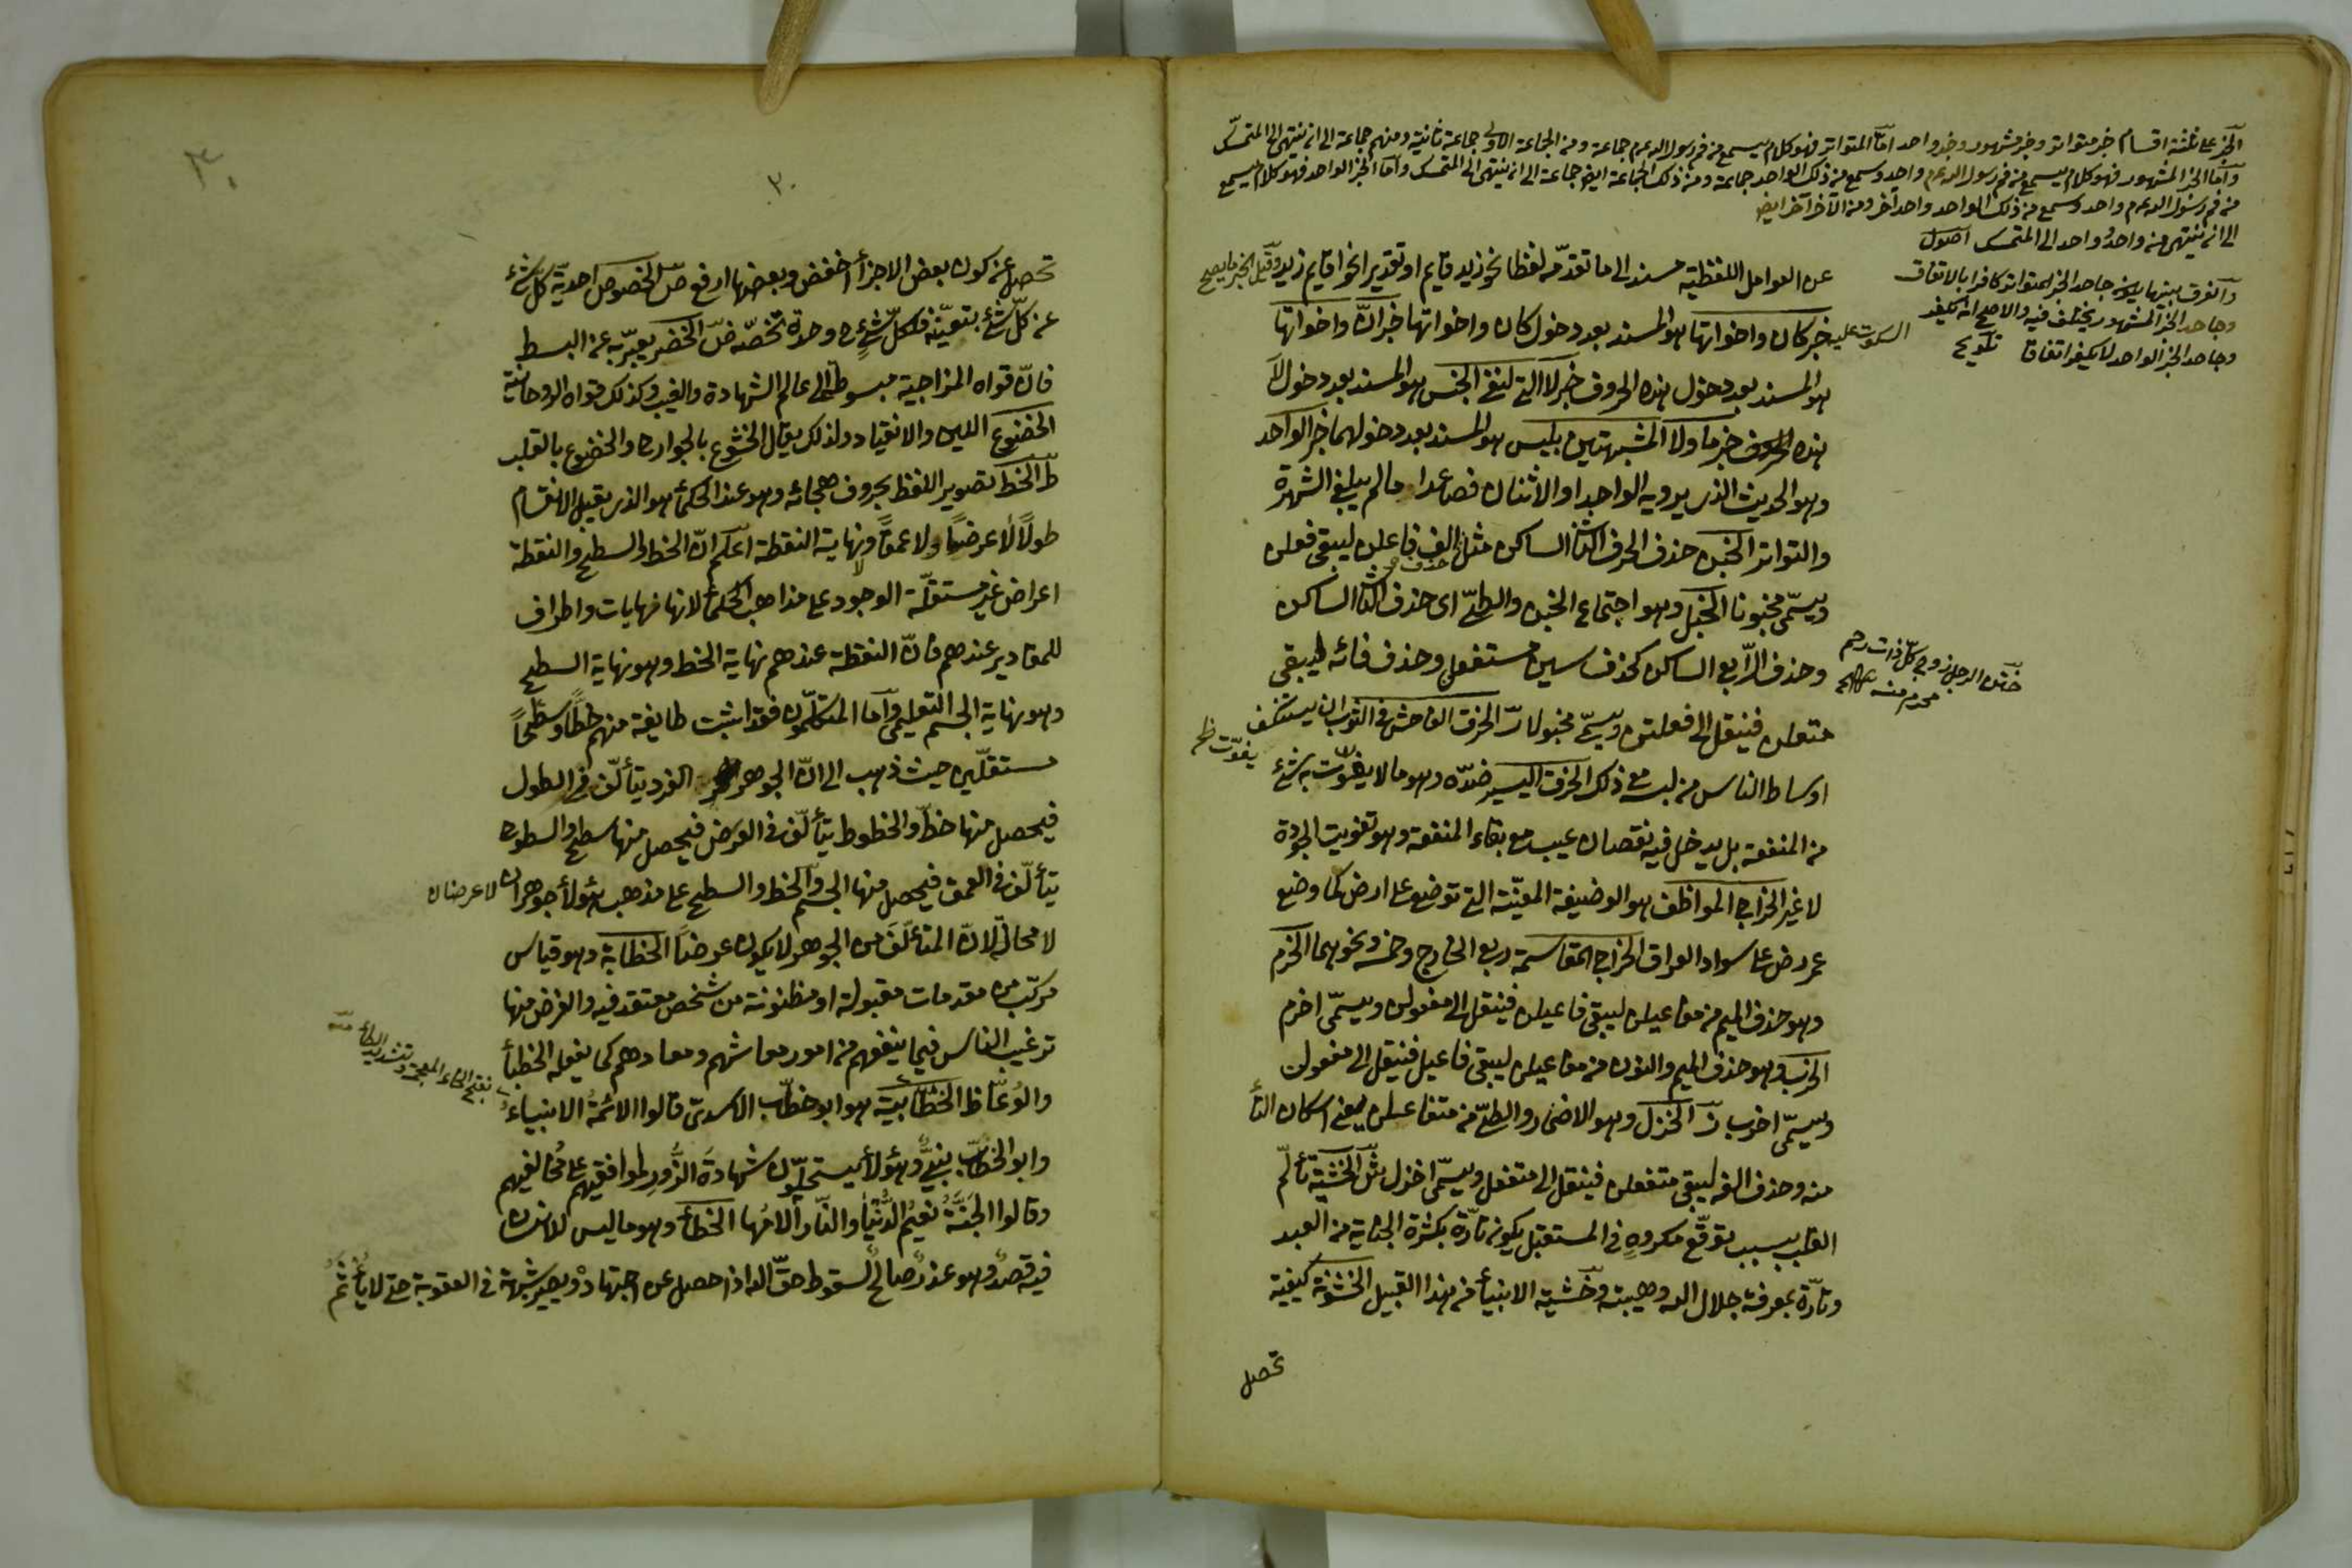 الخبر على ثلثة اقسام خبر متواتر وخبر مشهور وخبر واحد امّا المتواتر فهو كلام يسمع من فم رسول الله عم جماعة ومن الجماعة الاولى جماعة ثانية ومنهم جماعة الى ان ينتهى الى المتمسّك
وامّا الخبر المشهور فهو كلام يسمع من فم رسول الله عم واحد ويسمع من ذلك الواحد جماعة ومن ذلك الجماعة ايضا جماعة الى ان ينتهى الى المتمسك وامّا الخبر الواحد فهو كلام يسمع
من فم رسول الله عم واحد ويسمع من ذلك الواحد واحد آخر ومن الآخر آخر ايضا
الى ان ينتهى من واحد واحد الى المتمسك اصول
والفرق بينها يكون جاحد الخبر المتواتر كافرا بالاتفاق
وجاحد الخبر المشهور يختلف فيه والاصح انه يكفر
وجاحد الخبر الواحد لا يكفر اتفاقا تلويح
عن العوامل اللفظية مسند الى ما تقدّمه لفظا نحو زيد قايم او تقديرا نحو اقايم زيد وقيل الخبر ما يصح
السكوت عليه خبر كان واخواتها هو المسند بعد دخول كان واخواتها خبر انّ واخواتها
هو المسند بعد دخول هذه الحروف خبر لا التى لنفى الجنس هو المسند بعد دخول لا
هذه خبر ما ولا المشبهتين بليس هو المسند بعد دخولهما خبر الواحد
وهو الحديث الذى يرويه الواحد او الاثنان فصاعدا ما لم يبلغ الشهرة
والتواتر الخبن حذف الحرف الثانى الساكن مثل الف فاعلن ليبقى فعلن
ويسمّى مخبونا الخبل وهو اجتماع الخبن والطىّ اى حذف الثانى الساكن
وحذف الرّابع الساكن كحذف سين مستفعلن وحذف فائه ليبقى
ختن الرجل زوج كلّ ذات رحم
محرم منه
متعلن فينقل الى فعلتن ويسمّى مخبولا رّ الخرق الفاحش فى الثوب ان يستنكف
اوساط الناس من لبسه مع ذلك الخرق اليسير ضدّه وهو ما لا يفوّت به شئ
يفوّت ظ
من المنفعة بل يدخل فيه نقصان عيب مع بقاء المنفعة وهو تفويت الجودة
لا غير الخراج الموظف هو الوضيفة المعيّنة التى توضع على ارض كما وضع
عمر رض على سواد العراق الخراج المقاسمة ربع الخارج وخمسه ونحوهما الخرم
وهو حذف الميم من مفاعيلن ليبقى فاعيلن فينقل الى مفعولن ويسمّى اخرم
الخرب وهو حذف الميم والنون من مفاعيلن ليبقى فاعيل فينقل الى مفعول
ويسمّى اخرب زّ الخزل وهو الاضمار والطىّ من متفاعلن يعنى اسكان التأ
منه وحذف الفه ليبقى متفعلن فينقل الى مفتعلن ويسمّى اخزل شّ الخشية تألّم
القلب بسبب توقّع مكروه فى المستقبل يكون تارّة بكثرة الجناية من العبد
وتارّة بمعرفة جلال الله وهيبته وخشية الانبيأ من هذا القبيل الخشونة كيفية
تحصل
٣٠
٣٠
تحصل عن كون بعض الاجزأ اخفض وبعضها ارفع صّ الخصوص احديّة كلّ شئ
عن كلّ شئ بتعيّنه فلكلّ شئ ح وحدة تخصّه ضّ الخضر يعبّر به عن البسط
فانّ قواه المزاجية مبسوطة الى عالم الشهادة والغيب وكذلك قواه الروحانية
الخضوع اللين والانقياد ولذلك يقال الخشوع بالجوارح والخضوع بالقلب
طّ الخط تصوير اللفظ بحروف هجائه وهو عند الحكمأ هو الذى يقبل الانقسام
طولًا لا عرضًا ولا عمقًا ونهاية النقطة اعلم انّ الخط والسطح والنقطة
اعراض غير مستقلّة الوجود على مذاهب الحكمأ لانها نهايات واطراف
للمقادير عندهم فانّ النقطة عندهم نهاية الخط وهو نهاية السطح
وهو نهاية الجسم التعليمى وامّا المتكلّمون فقد اثبت طايفة منهم خطًّا وسطحًا
مستقلّين حيث ذهب الى انّ الجوهر الفرد يتألّف فى الطول
فيحصل منها خطّ والخطوط يتألّف فى العرض فيحصل منها سطح والسطوح
يتألّف فى العمق فيحصل منها الجسم والخط والسطح على مذهب هؤلأ جوهران لا عرضان
لا محالة لانّ المتألّف من الجوهر لا يكون عرضًا الخطابة وهو قياس
مركّب من مقدمات مقبولة او مظنونة من شخص معتقد فيه والغرض منها
ترغيب الناس فيما ينفعهم من امور معاشهم ومعادهم كما يفعله الخطبأ
والوُعّاظ الخطّابية هو ابو خطّاب الاسدىّ قالوا الائمّة الانبياء
بفتح الخاء المعجمة وتشديد الطأ
وابو الخطّاب نبىّ وهؤلأ يستحلّون شهادة الزّور لموافقيهم على مخالفيهم
وقالوا الجنّة نعيم الدّنيا والنّار آلامها الخطأ وهو ما ليس للانسان
فيه قصد وهو عذر صالح لسقوط حقّ الله اذا حصل عن اجتهاد ويصير شبهة فى العقوبة حتى لا يأثم